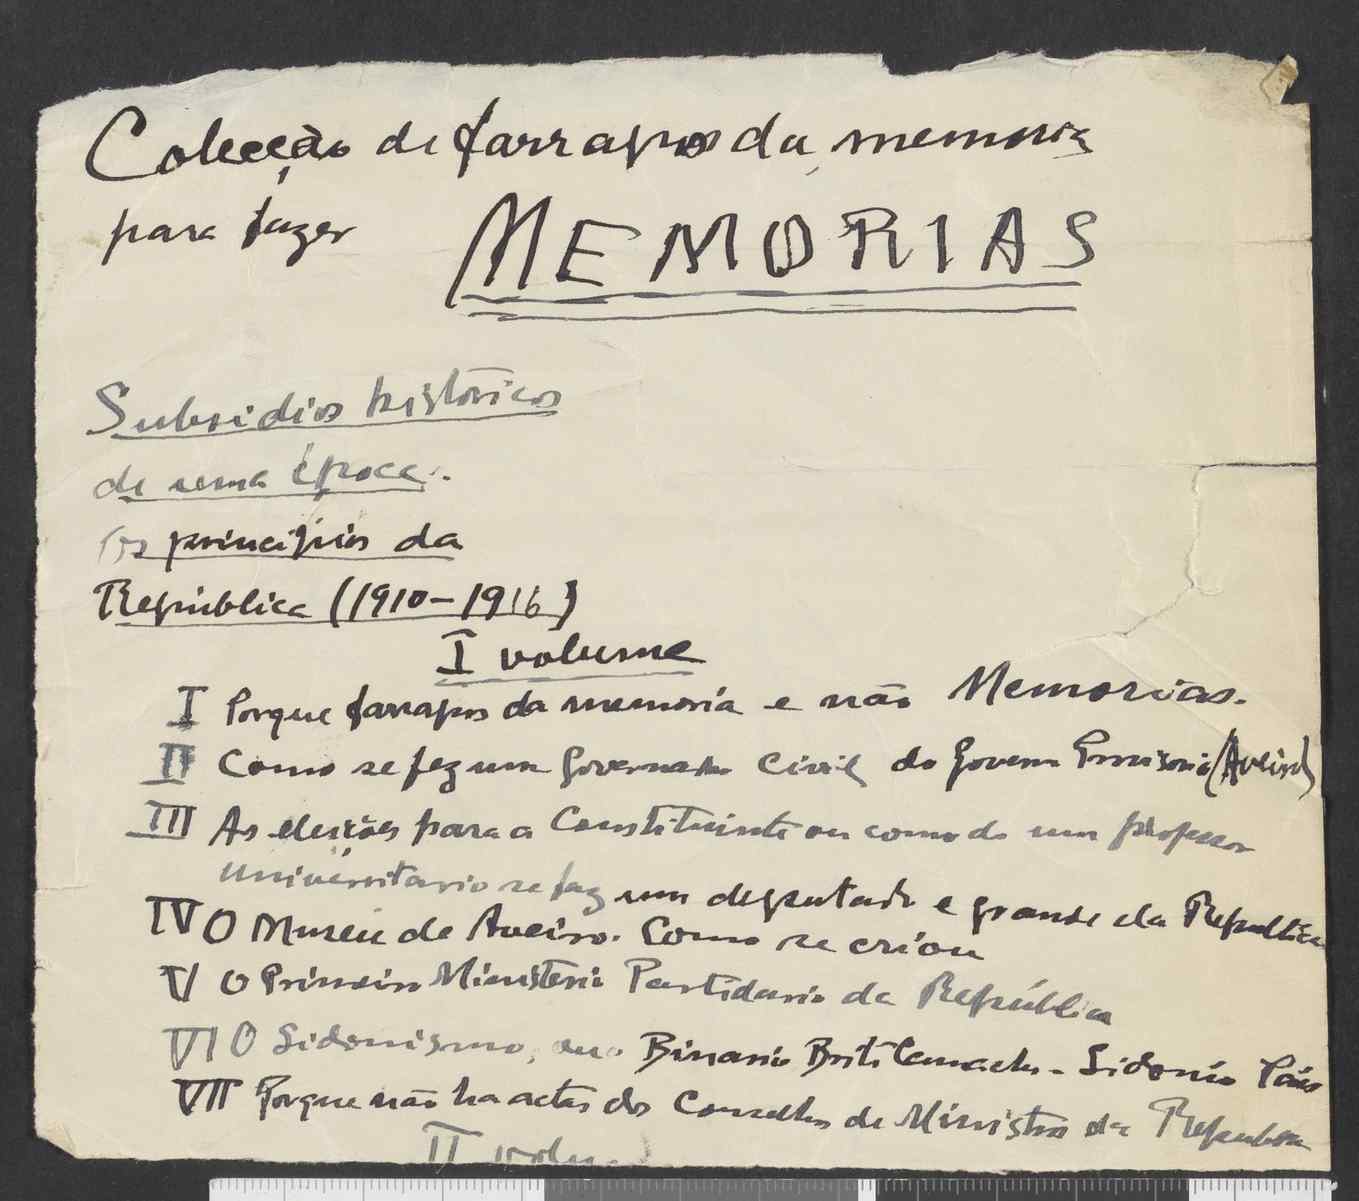 Colecção de farrapos da memoria
para fazer MEMORIAS
Subsidios históricos
de uma época.
Os principios da
República (1910-1916)
I volume
I Porque farrapos da memória e não Memorias.
II Como se fez um Governador Civil do Governo Provisorio (Aveiro)
III As eleições para a Constituinte ou como de um professor
universitario se faz um deputado e grande da Republica
IV O Museu de Aveiro. Como se criou
V O Primeiro Ministério Partidario da República
VI O Sidonismo, ou o Binario Brito Camacho - Sidonio Pais
VII Porque não ha actas dos Conselhos de Ministros da Republica
II volume